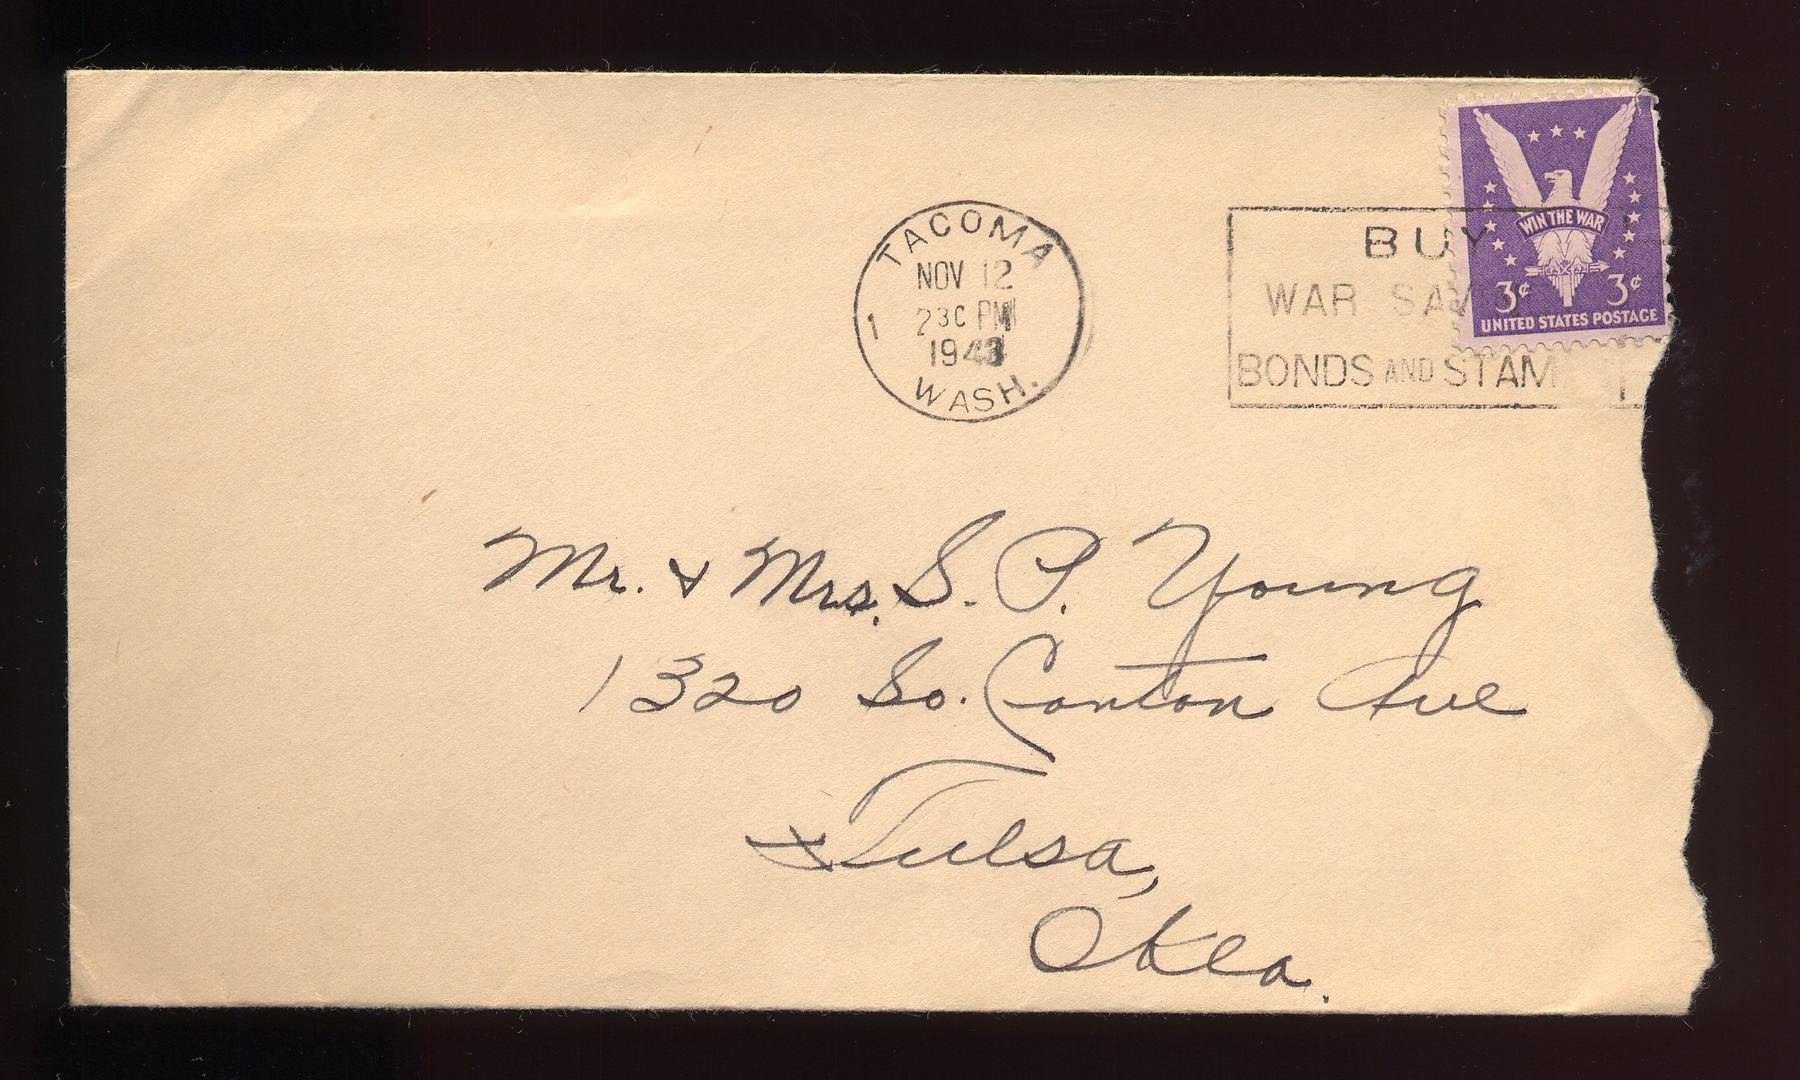 TACOMA
NOV 12
1 230 PM
1943
WASH.
BUY
WAR SAV
BONDS AND STAM
WIN THE WAR
3¢ 3¢
UNITED STATES POSTAGE
Mr. & Mrs. S. P. Young
1320 So. Canton Ave
Tulsa,
Okla.